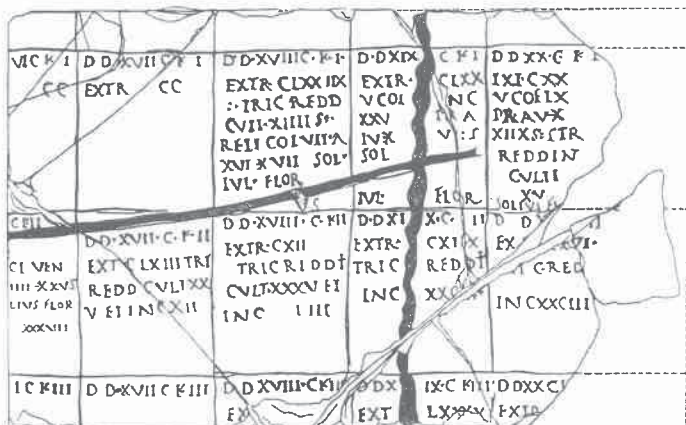 VI C K I
CC
D D · XVII C K I
EXTR CC
D D · XVIII C · K I ·
EXTR · CLXXIIX
TRIC REDD
CVII · XIIII S
RELI COL VII · A
XVI X VII SOL ·
IVL · FLOR
D · D XIX C K I
EXTR · CLXX
V COL NC
XXV A
IV X V : S
SOL
IVL FLOR
D D XX · C K I
IXI · C XX
V COL LX
PRAV · X
XIIX S : STR
REDD IN
CVLTI
XV
SOL
C K II
CL VEN
IIII · XXVS
LIVS FLOR
XXXVIII
D D · XVII · C · K · II
EXT C LXIII TRI
REDD CVLT XX
V EI INC XII
D D · XVIII · C · K II
EXTR · CXII
TRIC RIDD†
CVLT · XXXV EI
INC LIII
D · D XI X · C · II
EXTR · CXI X
TRIC REDD†
INC XX
D D
EX VI ·
C · RED
IN CXXCIII
I C K III
D D · XVII C K III
D D XVIII · C K II
EX
D D X IX · C K III
EXT LXX X
D D XX C I
EXTR